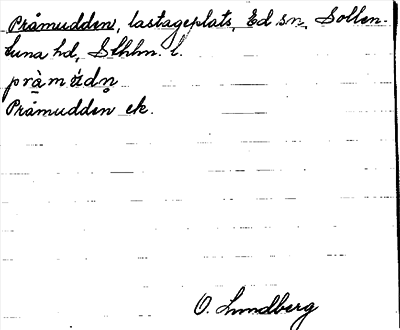 Pråmudden, lastageplats, Ed sn, Sollen-
tuna hd, Sthlm. l.
Pråmudden ek.
O. Lundberg